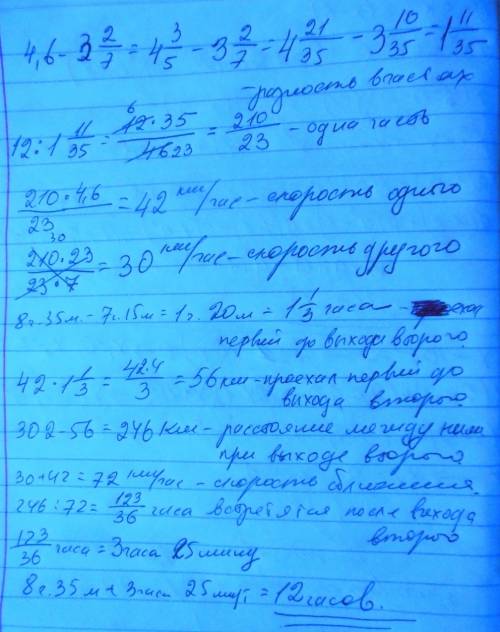 4,6 - 3 2/7 = 4 3/5 - 3 2/7 = 4 21/35 - 3 10/35 = 1 11/35
- разность в часах
12 : 1 11/35 = 12·35/46 6 23 = 210/23 - одна часть
210·4,6/23 = 42 км/час - скорость одного
30 210·23/23·7 = 30 км/час - скорость другого
8ч.35м. - 7ч.15м = 1ч.20м = 1 1/3 часа -
первый до выхода второго.
42·1 1/3 = 42·4/3 = 56 км - проехал первый до
выхода второго.
302-56 = 246 км - расстояние между ними
при выходе второго.
30+42 = 72 км/час - скорость сближения.
246:72 = 123/36 часа встретятся после выхода
второго
123/36 часа = 3часа 25мину
8ч.35м + 3часа 25мин = 12часов.